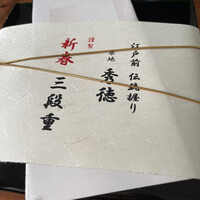 江戸前 伝統握り
築地 秀徳
謹製
新春 三段重